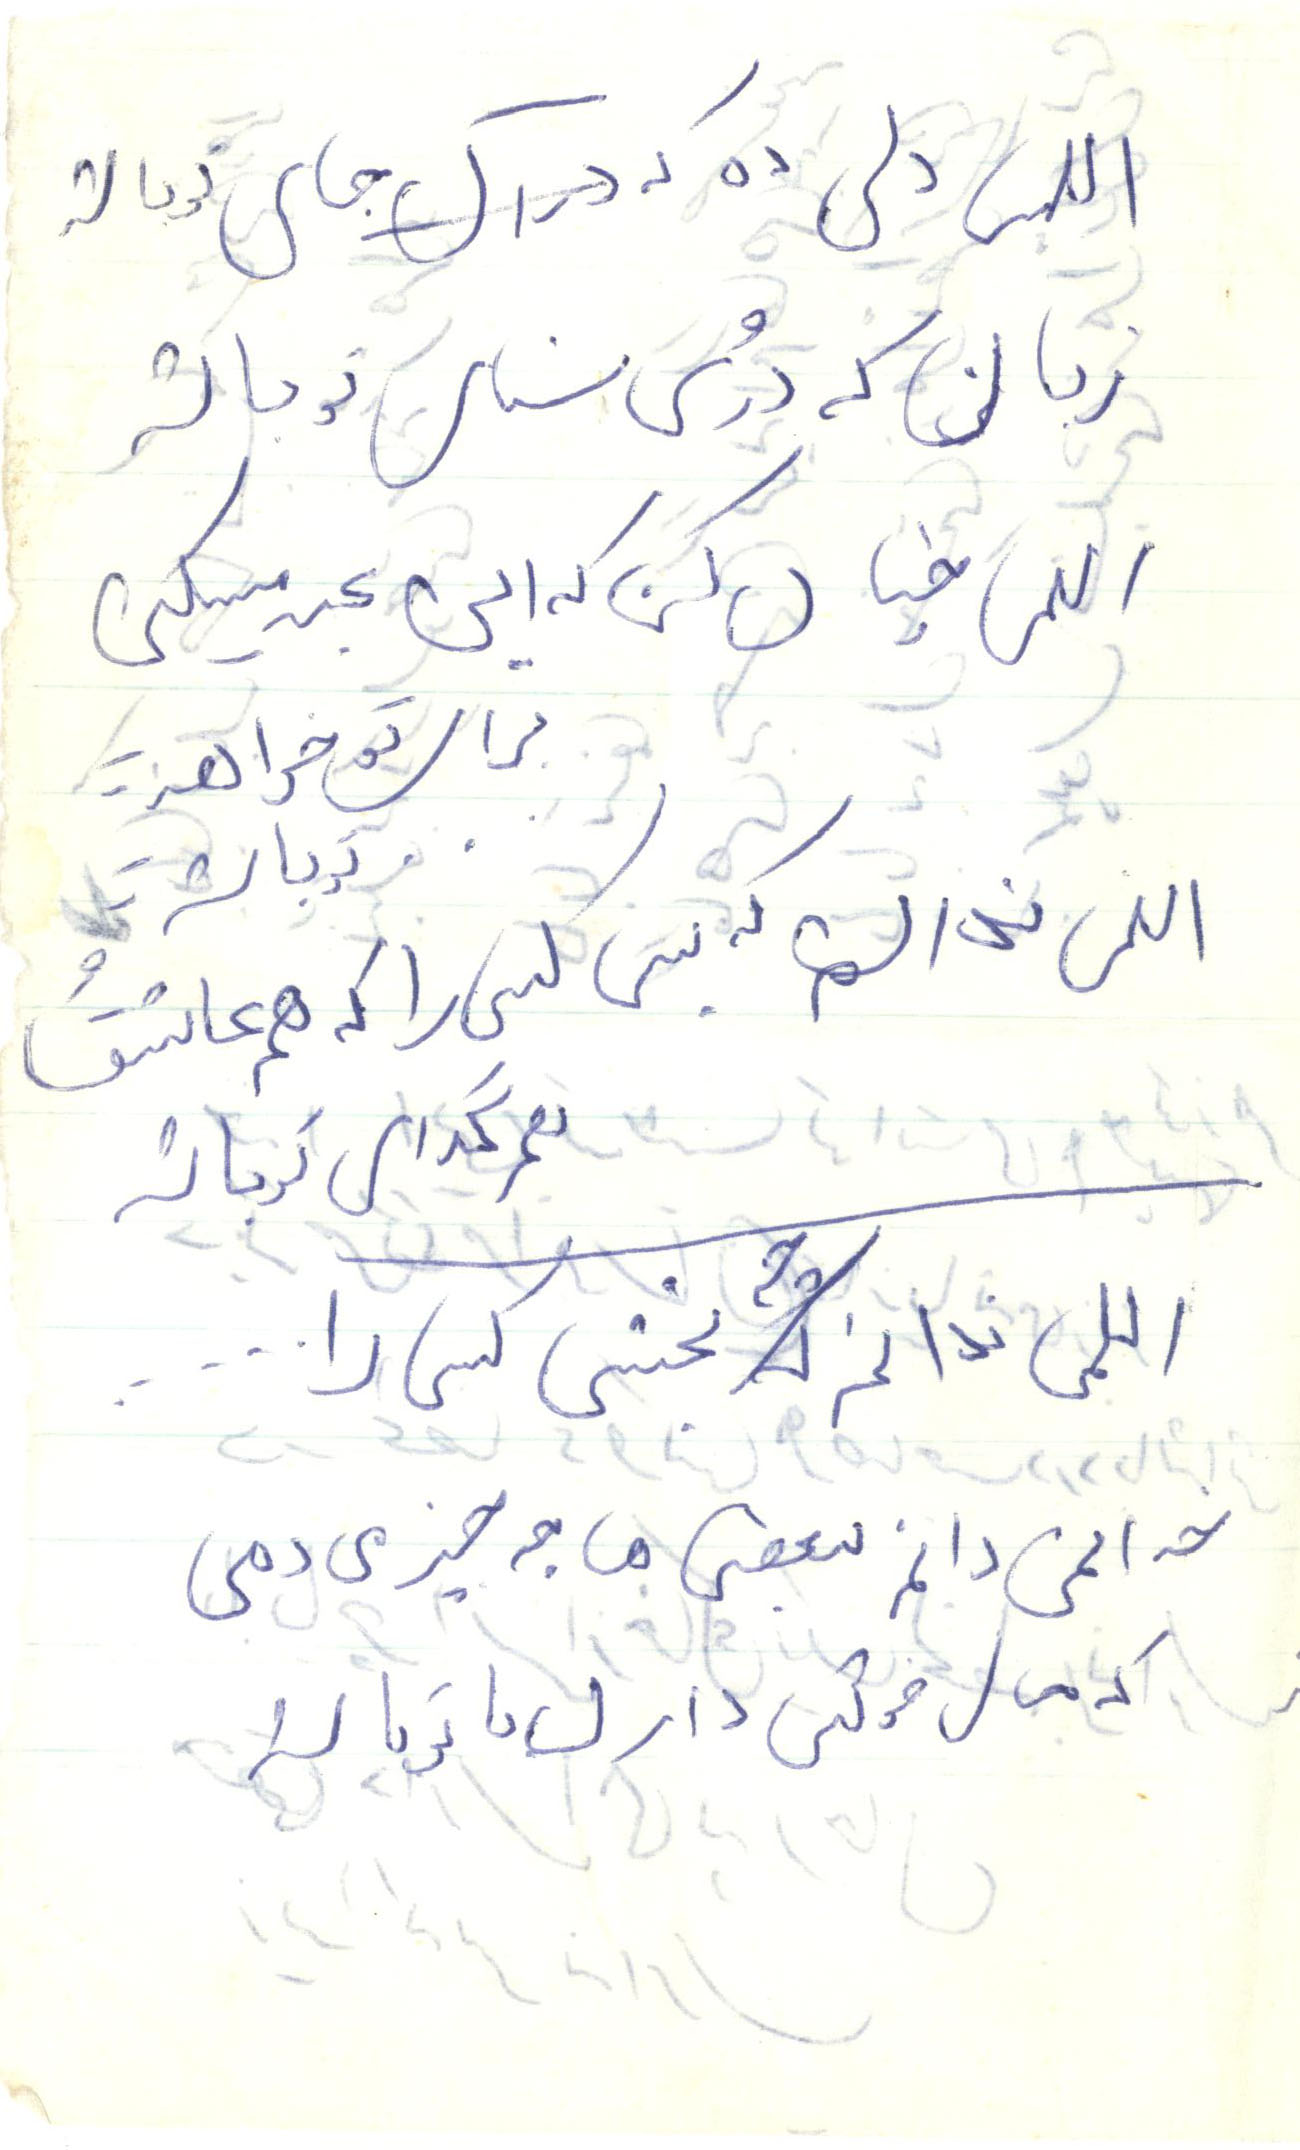 الهی دلی ده که در آن جای تو باشد
زبانی که در وی ثنای تو باشد
الهی چنان کن که این عبد مسکین
برای تو خواهد
تو باشد
الهی ندانم که بینی کسی را که هم عاشق و
هم گدای تو باشد
الهی ندانم چه بخشی کسی را . . . . .
خدا نمی دانم بعضی ها چه چیزی دهی
که حال خوشی دارند با تو باشد